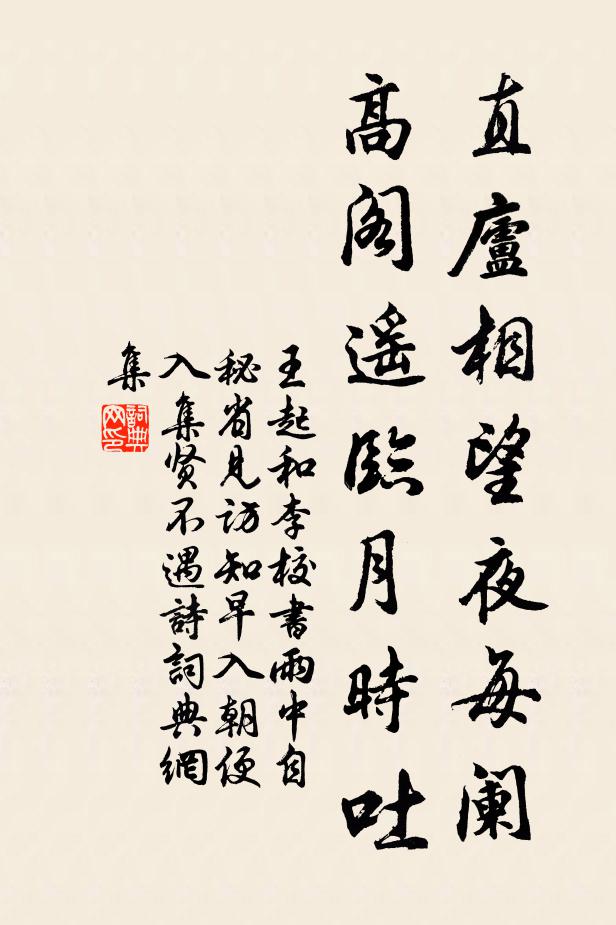 直廬相望夜每闌
高阁遥臨月時吐
王起和李校書雨中自
秘省見訪知早入朝便
入集贤不遇詩詞典網
集
詞典
网印